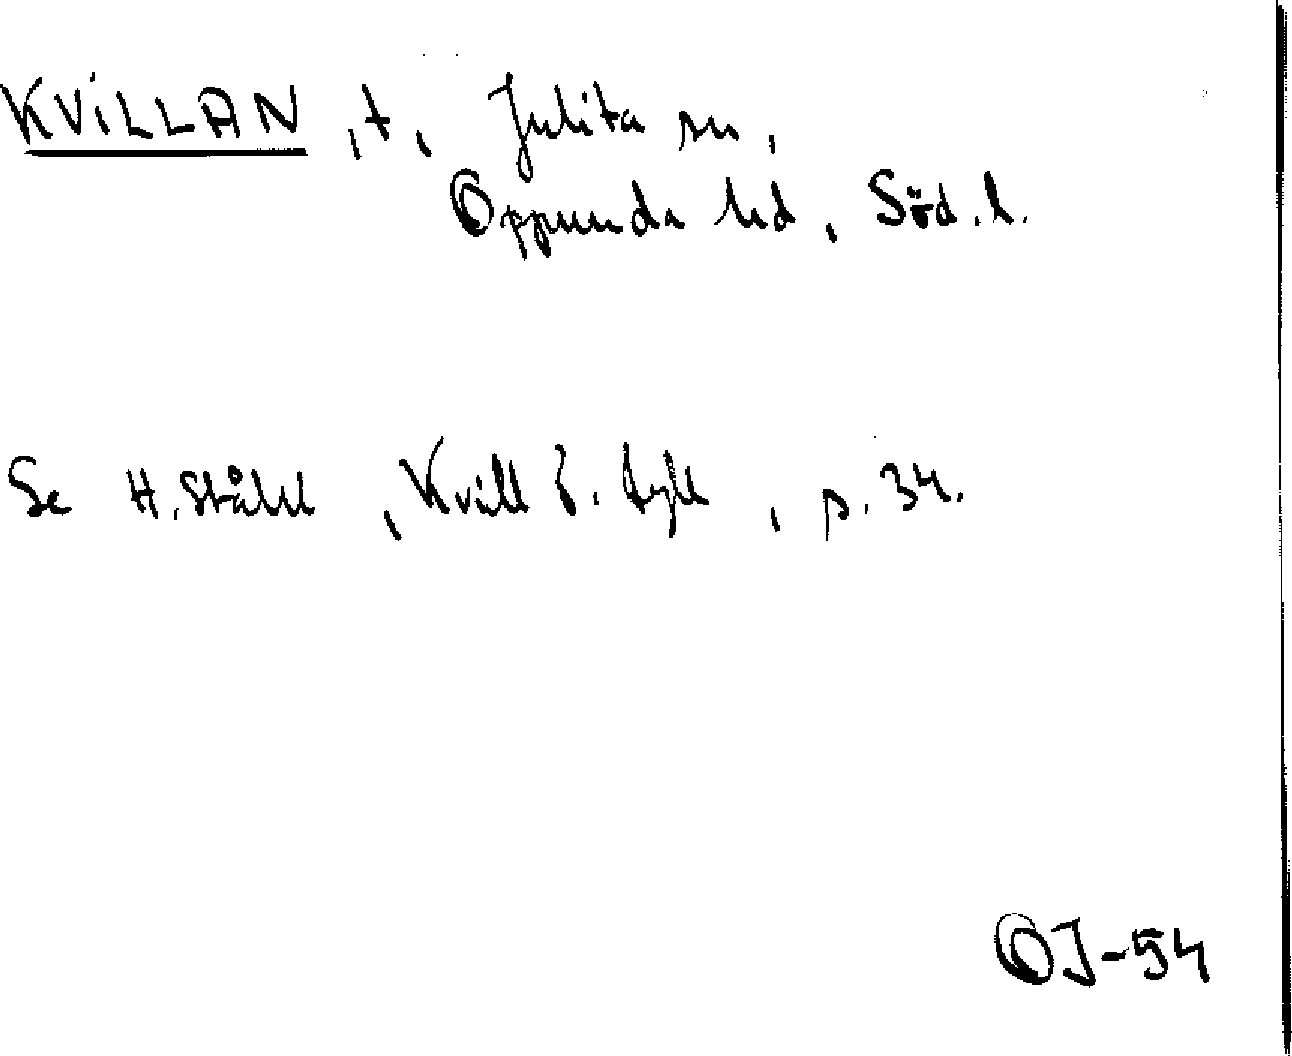 KVILLAN, t, Julita sn,
Oppunda hd, Söd. l.
Se H. Ståhl, Kvill o. tyll, p. 34.
OJ-54